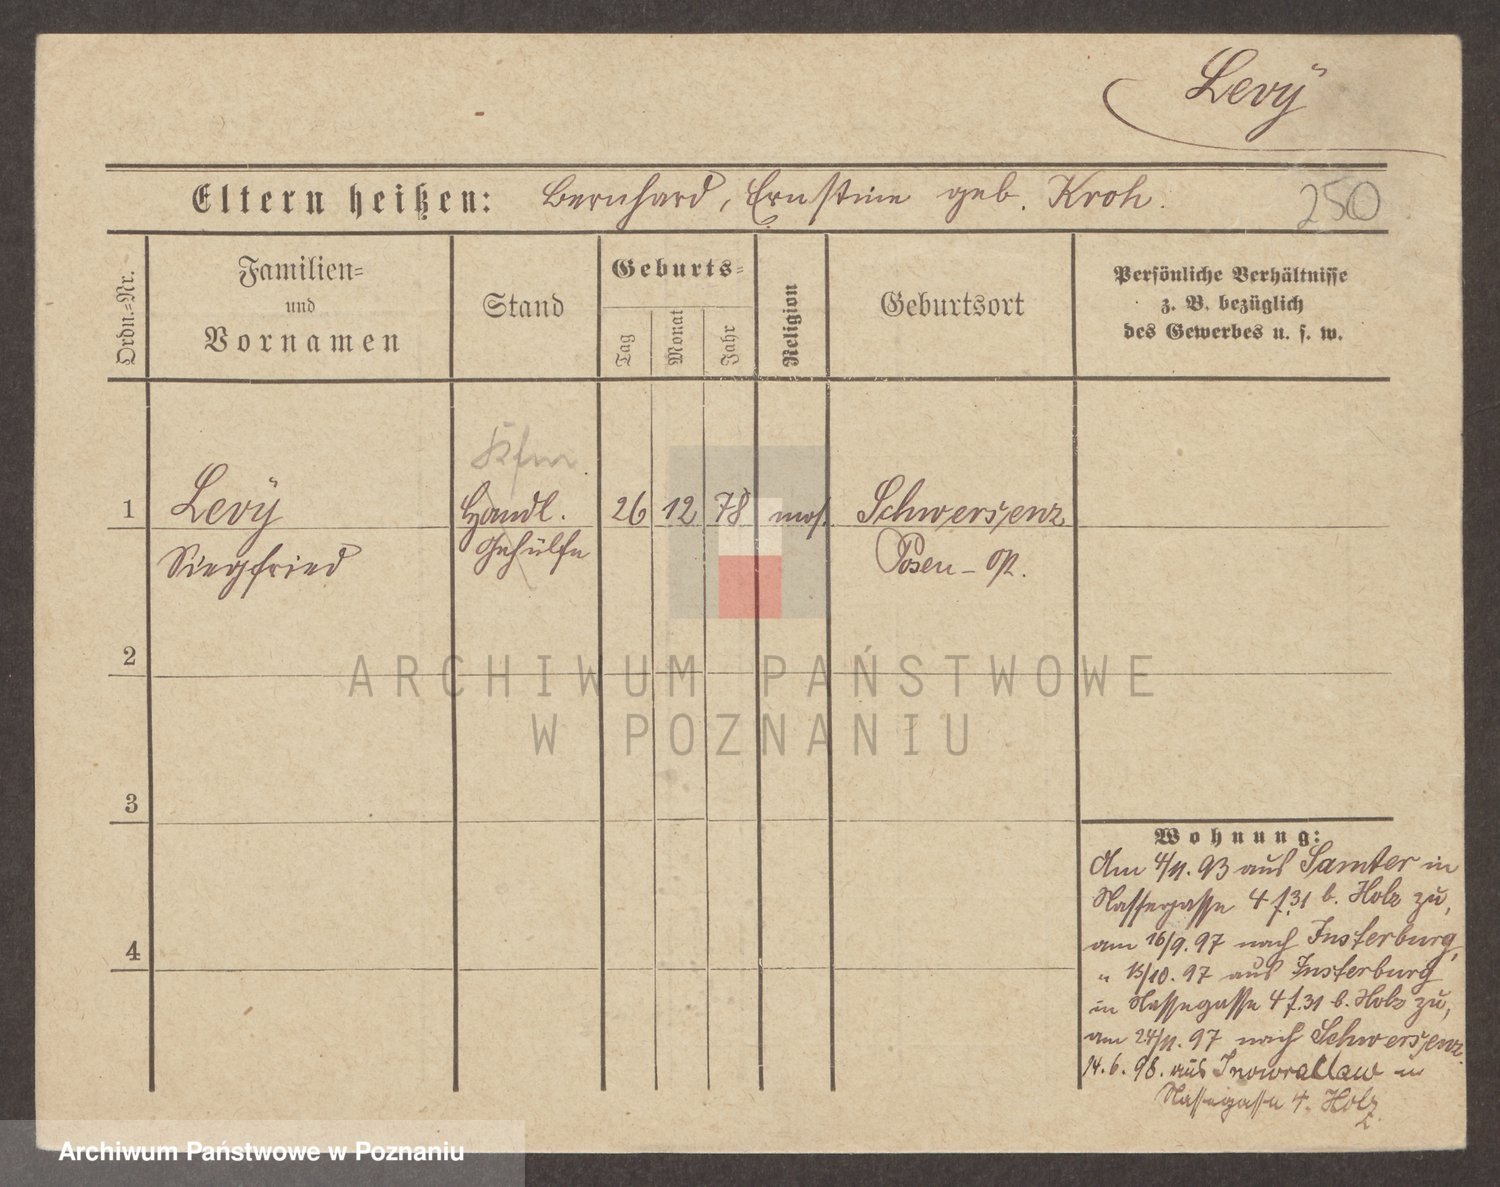 Levÿ
Eltern heißen: Bernhard, Ernstine geb. Kroh.
250
Ordn.=Nr.
Familien=
und
Vornamen
Stand
Geburts=
Tag
Monat
Jahr
Religion
Geburtsort
Persönliche Verhältnisse
z. B. bezüglich
des Gewerbes u. s. w.
Kfm
1 Levÿ Handl. 26 12 78 mos. Schwersenz
Siegfried Gehülfe Posen - O/P.
2
ARCHIWUM PAŃSTWOWE
W POZNANIU
3
Wohnung:
Am 4/11. 93 aus Samter in
Nassegasse 4 f. 31 b. Holz zu,
4
am 16/9. 97 nach Insterburg,
" 15/10. 97 aus Insterburg
in Nassegasse 4 f. 31 b. Holz zu,
am 24/11. 97 nach Schwersenz.
14. 6. 98. aus Inowrazlaw in
Nassegasse 4. Holz
Archiwum Państwowe w Poznaniu